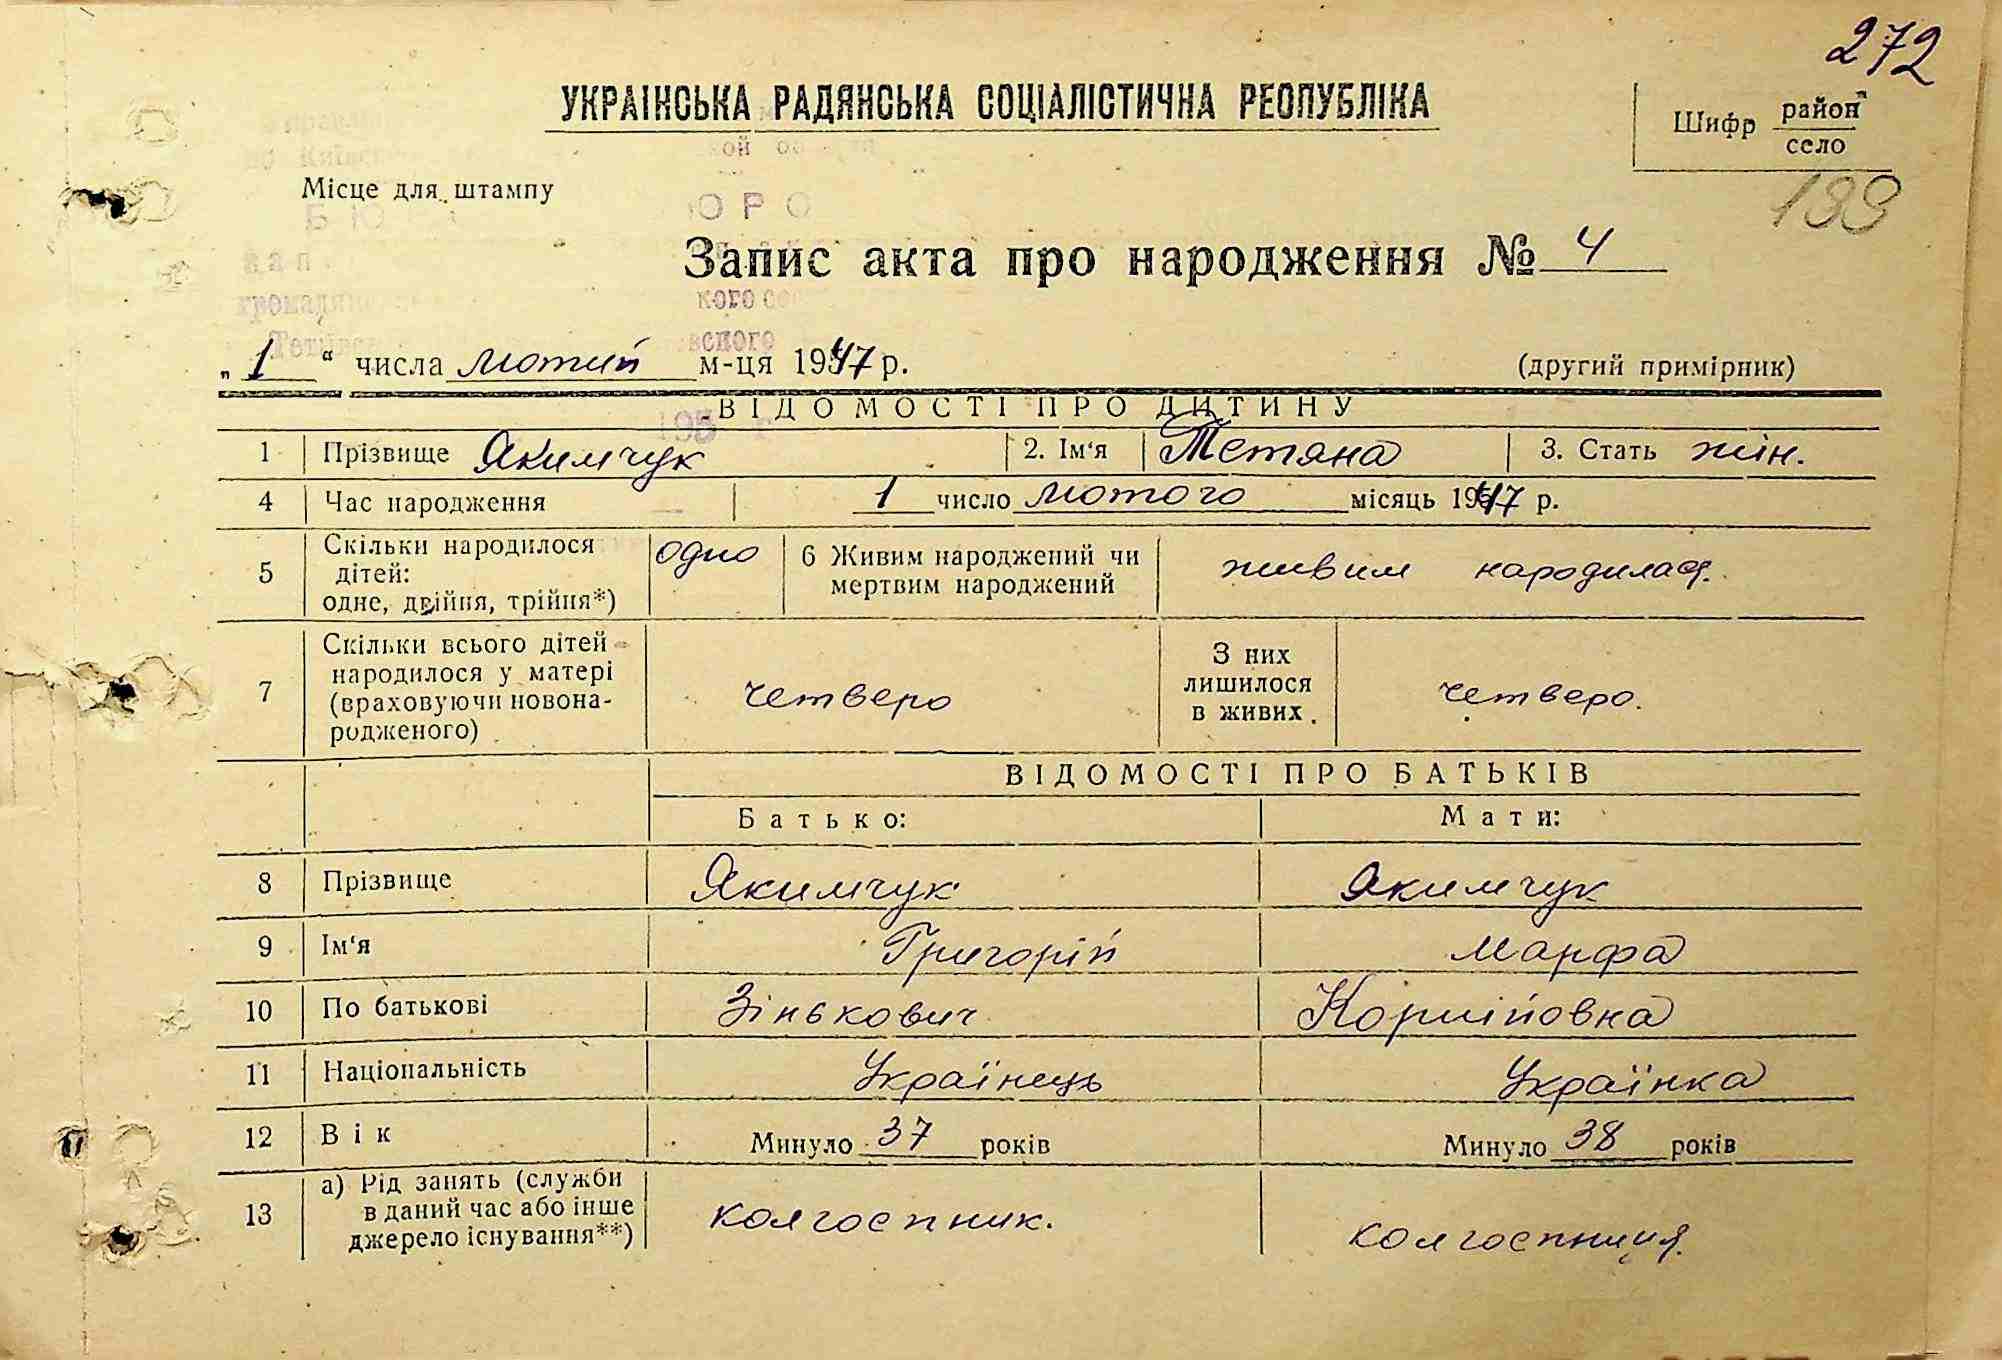 272
УКРАІНСЬКА РАДЯНСЬКА СОЦІАЛІСТИЧНА РЕОПУБЛІКА
Шифр район
село
199
Місце для штампу
Запис акта про народження № 4
„ 1 “ числа лютий м-ця 1947 р. (другий примірник)
ВІДОМОСТІ ПРО ДИТИНУ
1 Прізвище Якимчук 2. Ім‘я Тетяна 3. Стать жін.
4 Час народження 1 число лютого місяць 1947 р.
5 Скільки народилося дітей: одне, двійня, трійня*) одно 6 Живим народжений чи мертвим народжений живим народилася.
7 Скільки всього дітей народилося у матері (враховуючи новонародженого) четверо З них лишилося в живих. четверо.
ВІДОМОСТІ ПРО БАТЬКІВ
Батько: Мати:
8 Прізвище Якимчук Якимчук
9 Ім‘я Григорій Марфа
10 По батькові Зінькович Корнійовна
11 Національність Українець Українка
12 Вік Минуло 37 років Минуло 38 років
13 а) Рід занять (служби в даний час або інше джерело існування**) колгоспник. колгоспниця.